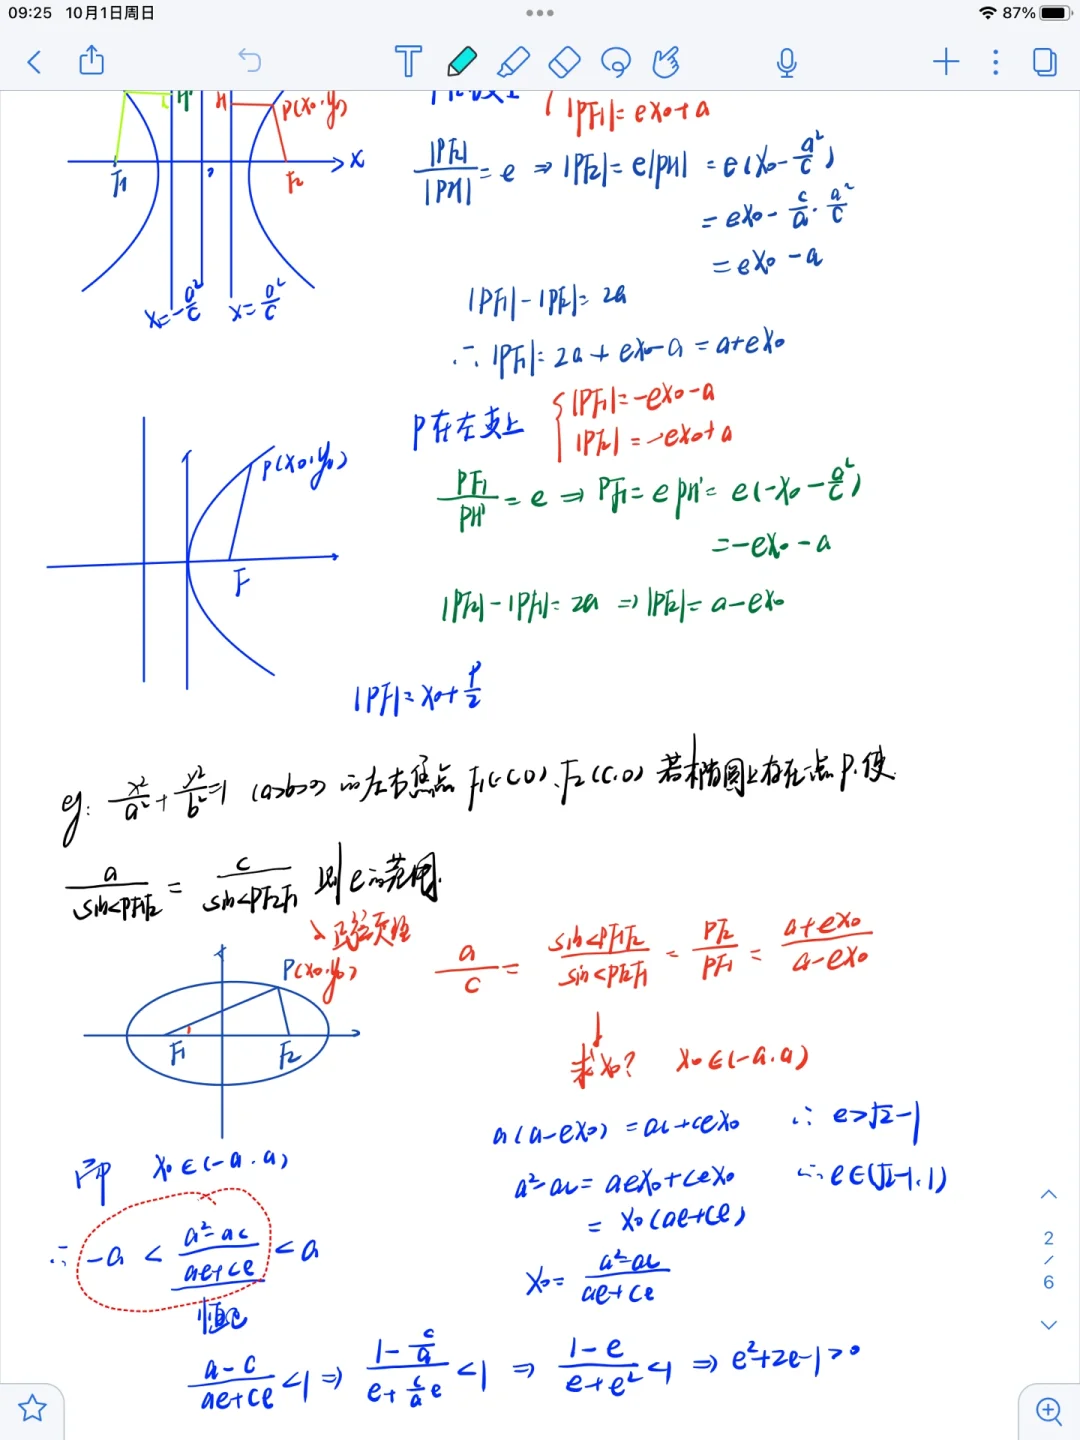 09:25 10月1日周日
87%
|PF1|=ex0+a
H' H P(x0,y0)
F1 F2 x
x=-a²/c x=a²/c
|PF2|/|PH|=e ⇒ |PF2|=e|PH| =e(x0-a²/c)
=ex0-c/a·a²/c
=ex0-a
|PF1|-|PF2|=2a
∴|PF1|=2a+ex0-a=a+ex0
P在左支上 {|PF1|=-ex0-a
|PF2|=-ex0+a
PF1/PH'=e ⇒ PF1=ePH'=e(-x0-a²/c)
=-ex0-a
|PF2|-|PF1|=2a ⇒|PF2|=a-ex0
P(x0,y0)
F
|PF|=x0+p/2
eg: x²/a²+y²/b²=1 (a>b>0) 的左右焦点 F1(-c,0)、F2(c,0) 若椭圆上存在一点P,使
a/sin<PF1F2 = c/sin<PF2F1 则e的范围.
→正弦定理
a/c = sin<PF1F2/sin<PF2F1 = PF2/PF1 = a+ex0/a-ex0
P(x0,y0)
F1 F2
↓
求x0? x0∈(-a,a)
a(a-ex0)=ac+cex0 ∴ e>√2-1
a²-ac=aex0+cex0 ∴ e∈(√2-1,1)
=x0(ae+ce)
x0=a²-ac/ae+ce
即 x0∈(-a,a)
∴ -a < a²-ac/ae+ce < a
恒成
a-c/ae+ce<1 ⇒ 1-c/a/e+c/a e<1 ⇒ 1-e/e+e²<1 ⇒ e²+2e-1>0
2
/
6